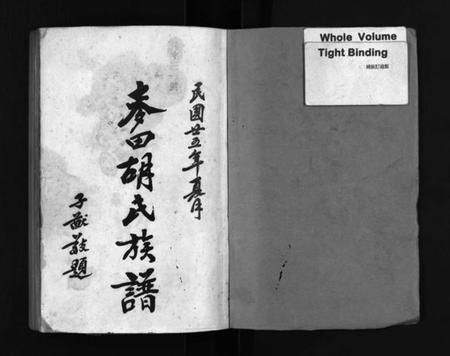 民國廿五年夏月
麥田胡氏族譜
子猷敬題
Whole Volume
Tight Binding